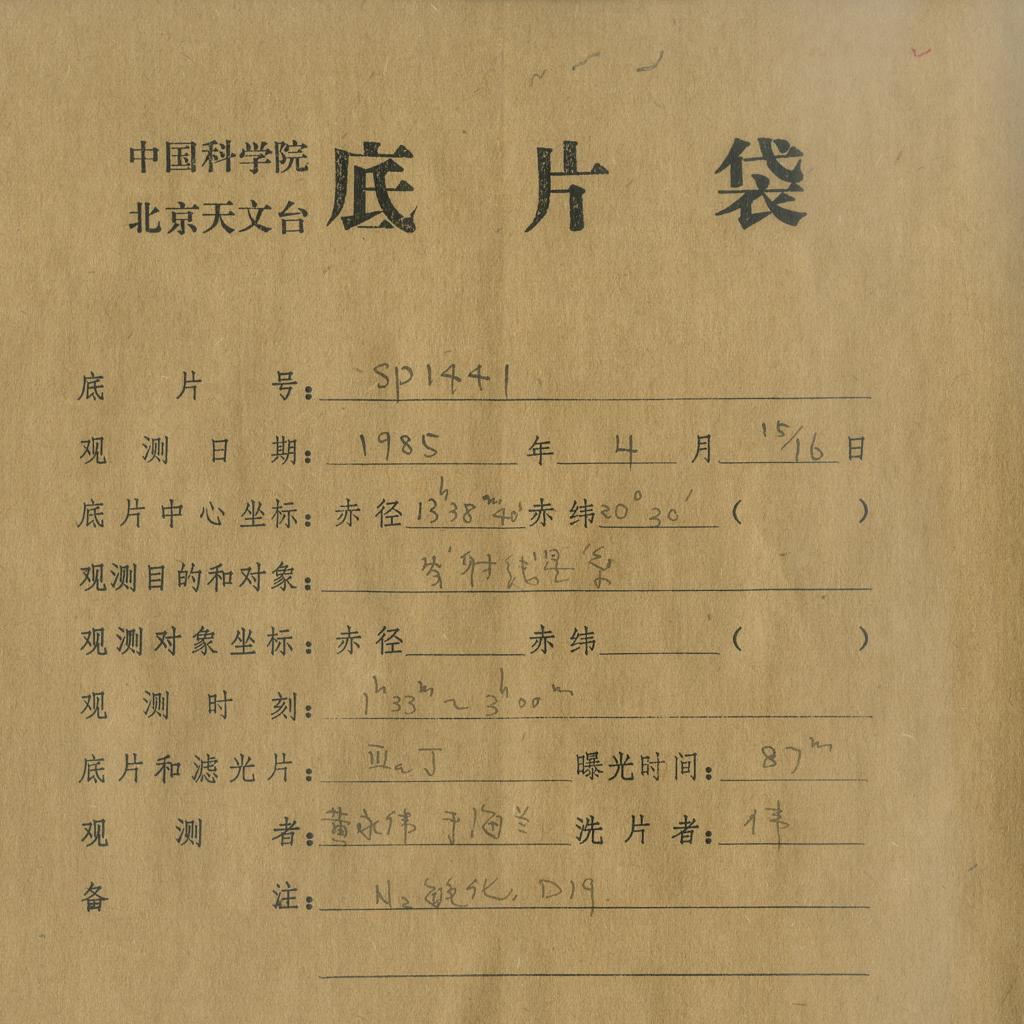 中国科学院
北京天文台
底片袋
底片号：SP1441
观测日期：1985年4月15/16日
底片中心坐标：赤径13h38m40s赤纬20°30′（ ）
观测目的和对象：发射线星系
观测对象坐标：赤径 赤纬 （ ）
观测时刻：1h33m～3h00m
底片和滤光片：ⅢaJ 曝光时间：87m
观测者：黄永伟 于海兰 洗片者：伟
备注：N2敏化，D19.